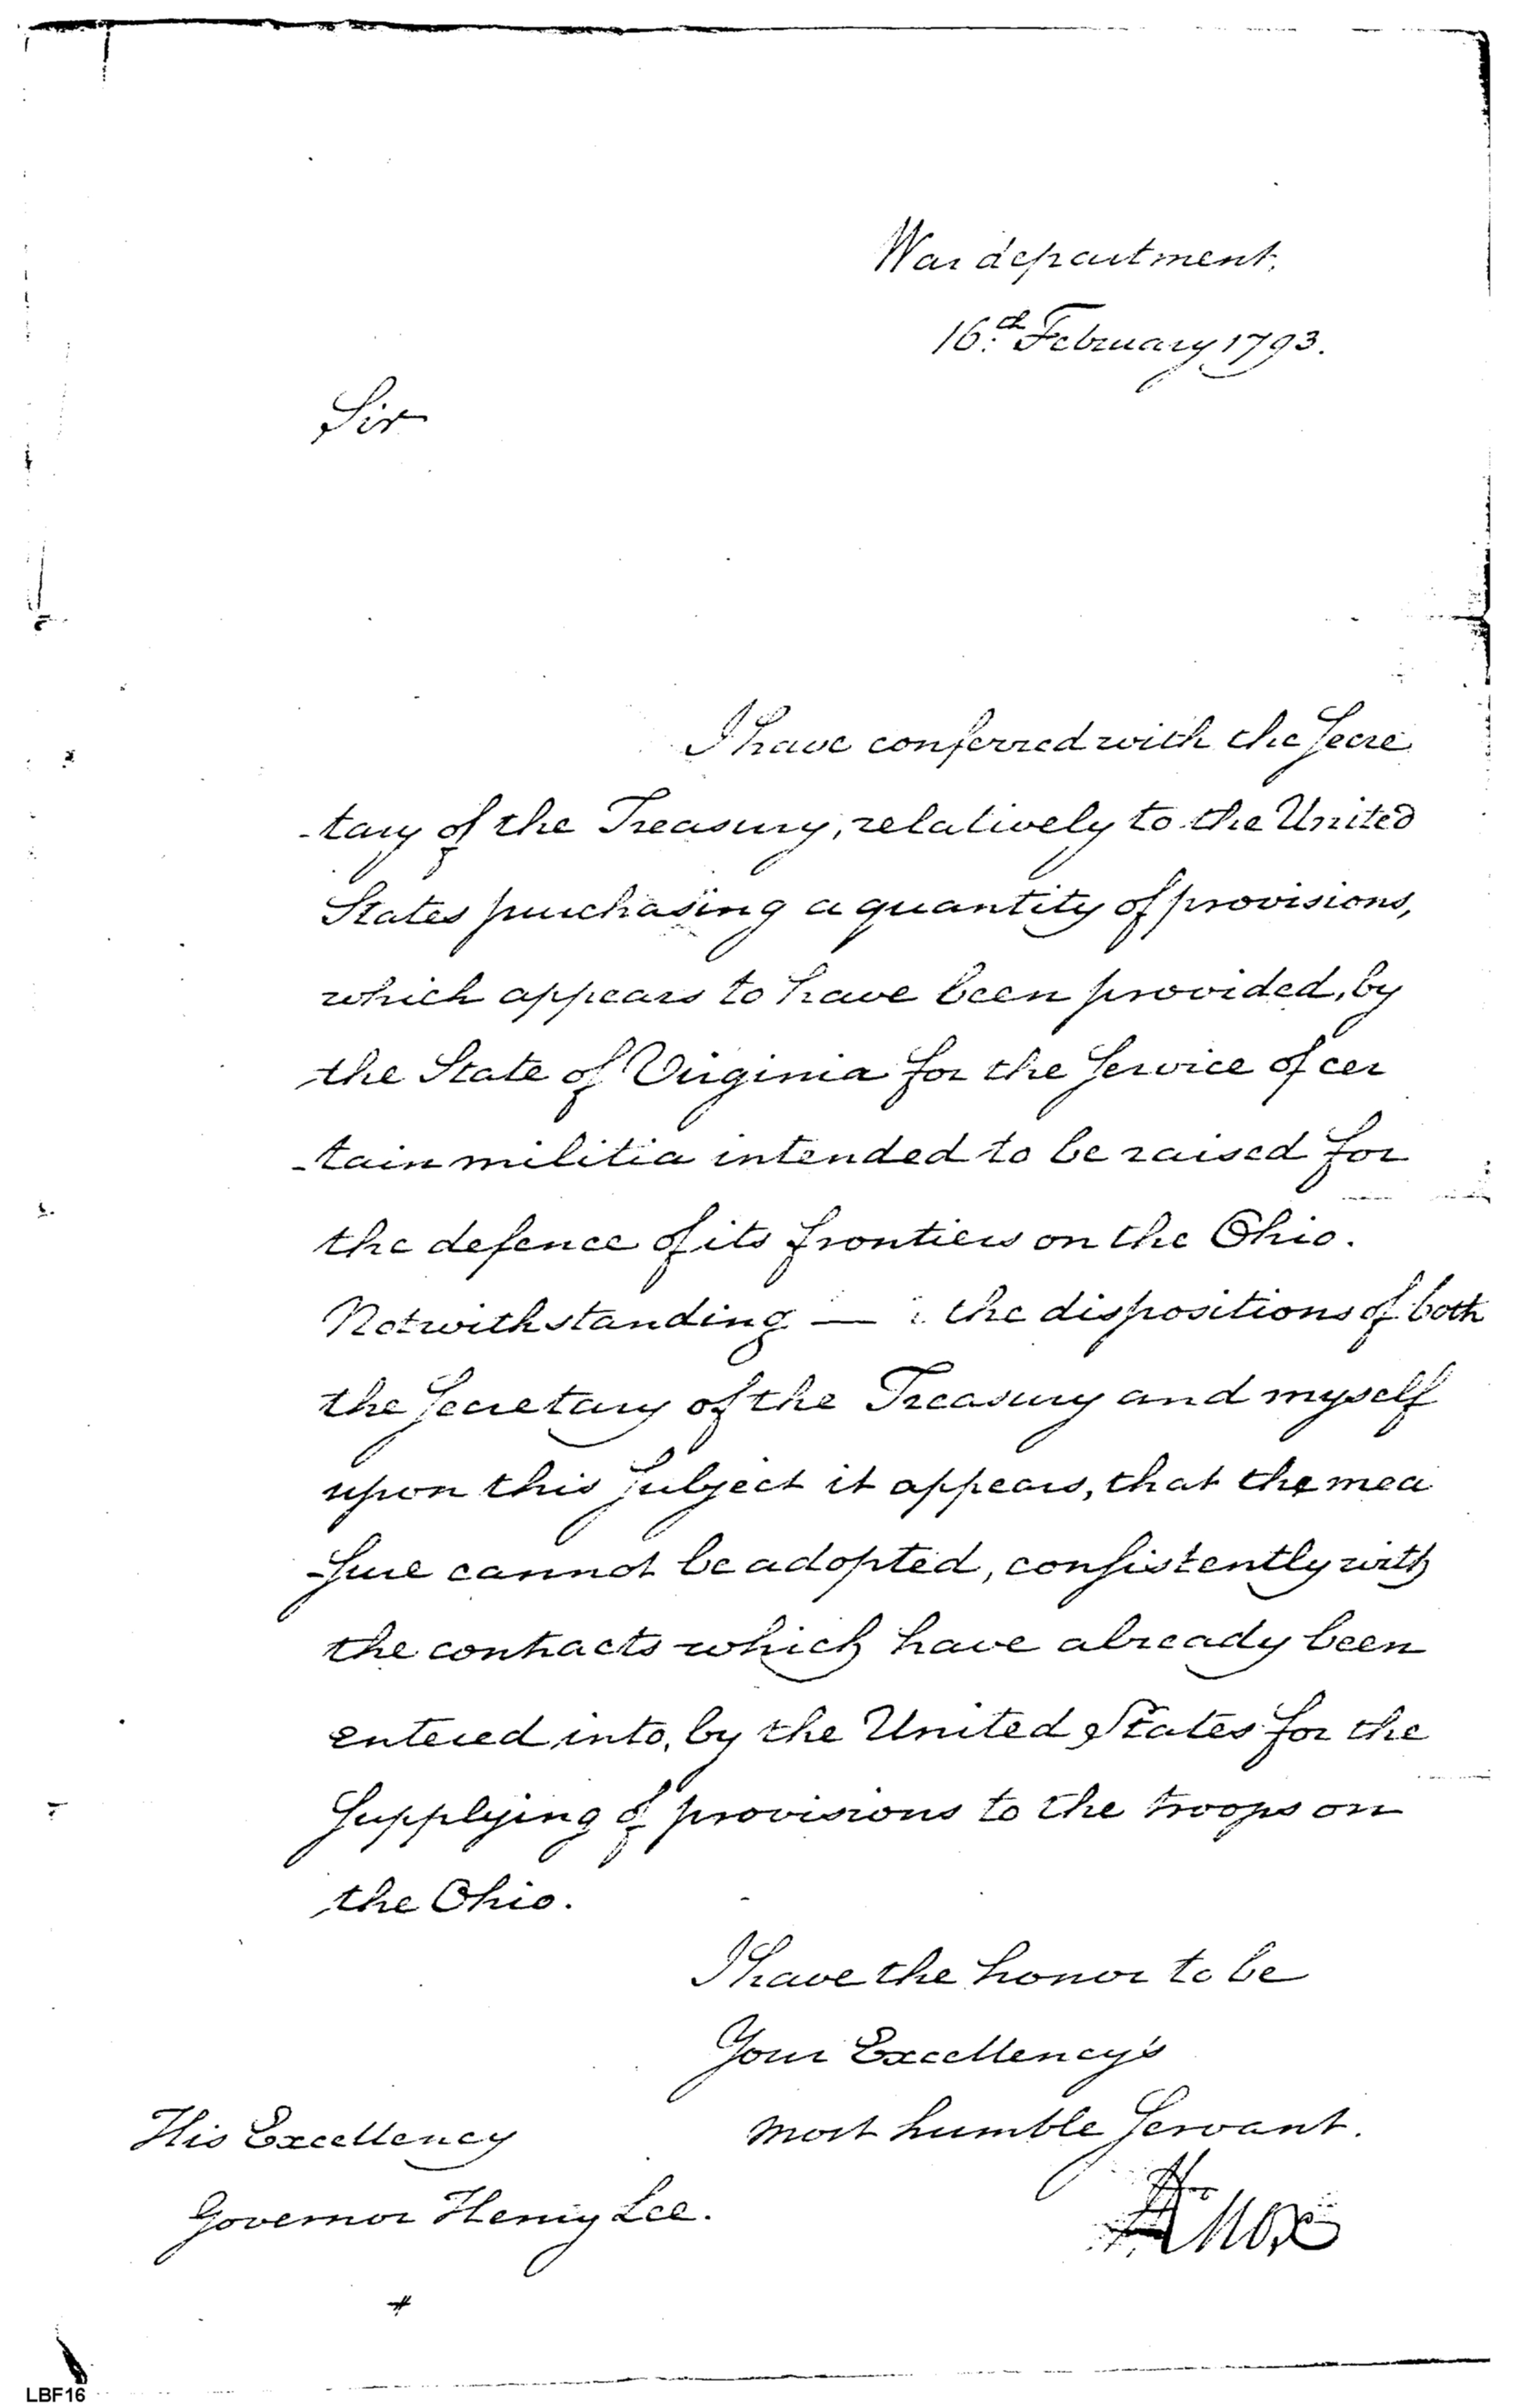 War department,
16th February 1793.
Sir
I have conferred with the Secre
-tary of the Treasury, relatively to the United
States purchasing a quantity of provisions,
which appears to have been provided, by
the State of Virginia for the Service of cer
-tain militia intended to be raised for
the defence of its frontiers on the Ohio.
Notwithstanding — the dispositions of both
the Secretary of the Treasury and myself
upon this Subject it appears, that the mea
-sure cannot be adopted, consistently with
the contracts which have already been
entered into, by the United States for the
Supplying of provisions to the troops on
the Ohio.
I have the honor to be
Your Excellency's
most humble Servant.
HKnox
His Excellency
Governor Henry Lee.
LBF16